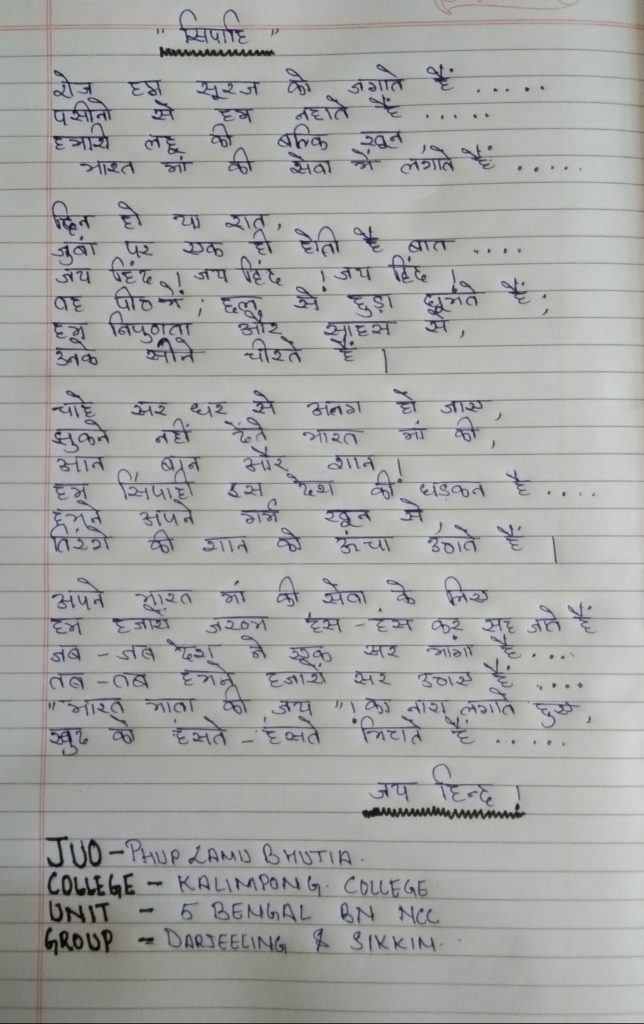 " सिपाहि "
रोज हम सूरज को जगाते हैं .....
पसीनो से हम नहाते हैं .....
हमारी लहू की बल्कि खून
भारत मां की सेवा में लगाते हैं .....
दिन हो या रात,
जुबां पर एक ही होती है बात ....
जय हिंद ! जय हिंद ! जय हिंद !
वह पीठ में, छलू से छुड़ा घूमते हैं;
हम निपुणता और साहस से,
उनके सीने चीरते हैं |
चाहे सर धर से अलग हो जाए,
झुकने नहीं देते भारत मां की,
आन बान और शान !
हम सिपाही इस देश की धड़कन है ....
हमने अपने गर्म खून से,
तिरंगे की शान को ऊंचा उठाते हैं |
अपने भारत मां की सेवा के लिए
हम हजारों जख्म हंस - हंस कर सह जाते हैं
जब - जब देश ने एक सर मांगा है ....
तब - तब हमने हजारों सर उठाए हैं ....
"भारत माता की जय "! का नारा लगाते हुए,
खुद को हंसते - हंसते मिटाते हैं .....
जय हिन्द !
JUO - PHUP LAMU BHUTIA.
COLLEGE - KALIMPONG COLLEGE
UNIT - 5 BENGAL BN NCC
GROUP - DARJEELING & SIKKIM.